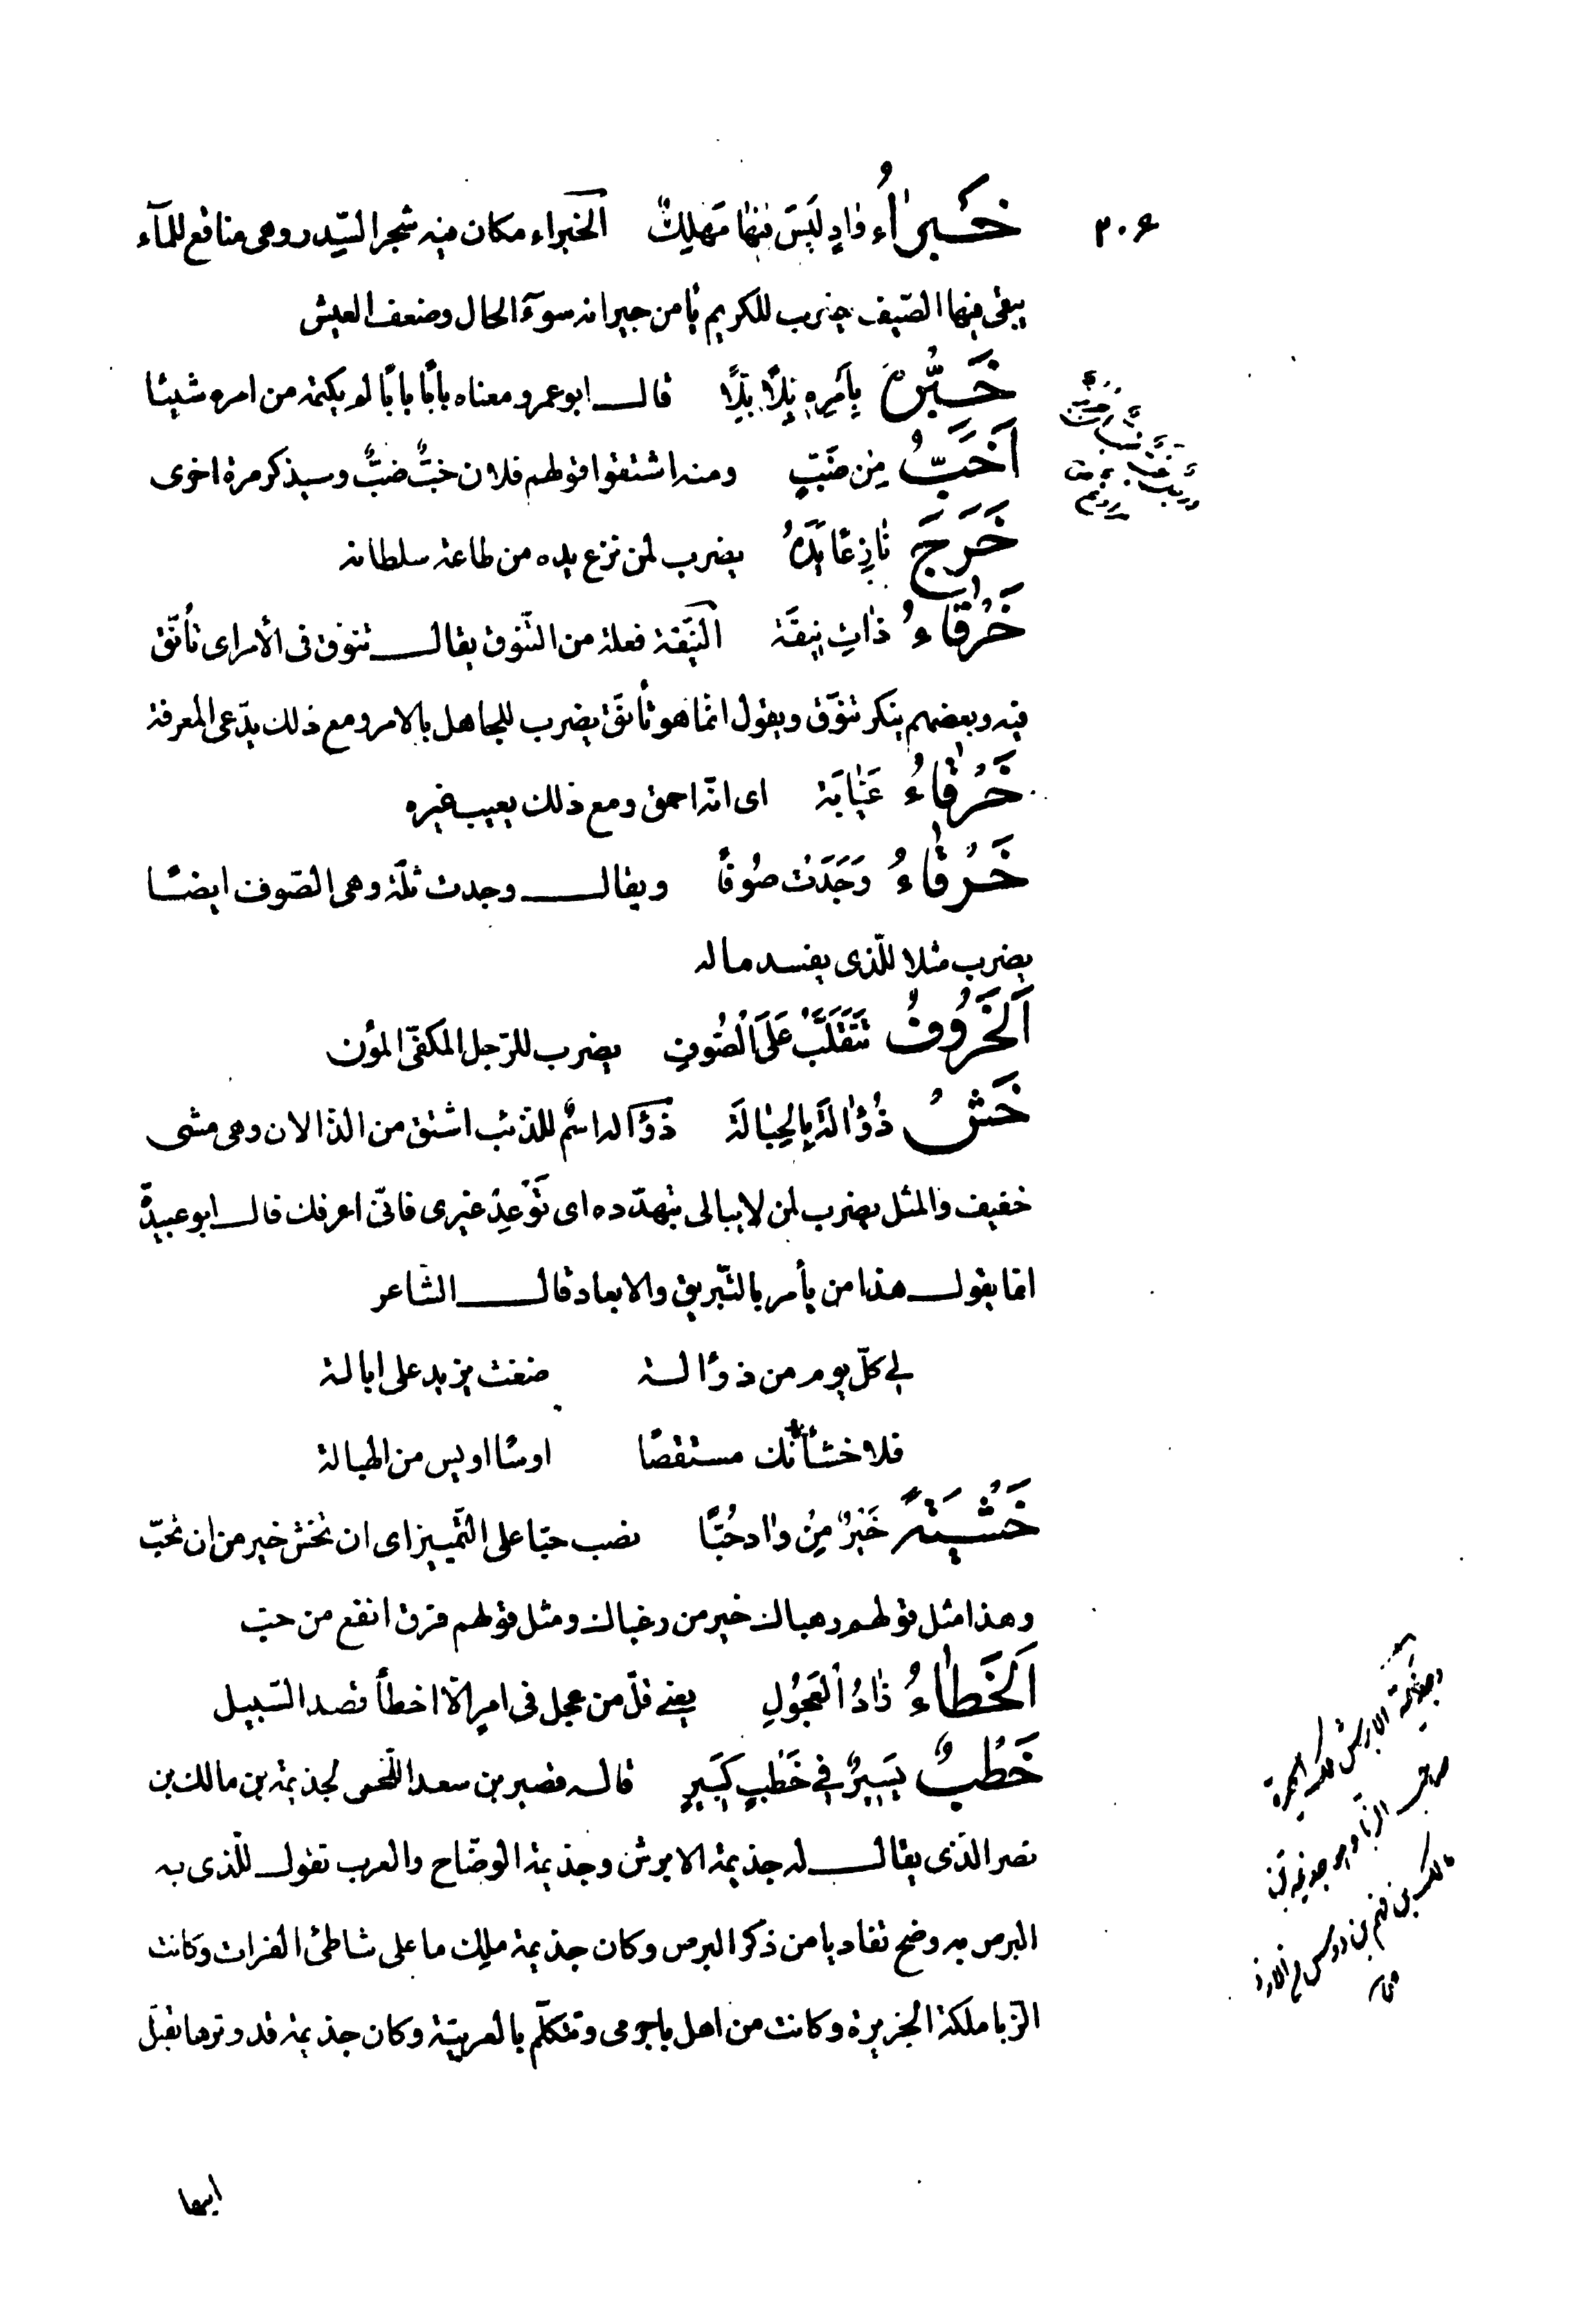 ٣٠۶
خَبْرَاءُ وَادٍ لَيْسَ فِيهَا مَهْلِكٌ الخبراء مكان فيه شجر السّدر وهى مناقع للمآء
يبقى فيها الصّيف يضرب للكريم يأمن جيرانه سوء الحال وضعف العيش
خَبَّرَهُ بِأَمْرِهِ بَلًا بَلًا قال ابو عمرو معناه بابًا بابًا لم يكتمه من امره شيئا
اَخَبُّ مِن ضَبٍّ ومنه اشتقوا قولهم فلان خبٌّ ضبٌّ وسيذكر مرة اخرى
خَرَجَ نَازِعًا يَدَهُ يضرب لمن نزع يده من طاعة سلطانه
خَرْقَاءُ ذَاتِ نِيقَة النّيقة فعلة من التّنوّق يقال تنوّق فى الأمر اى تأنّق
فيه وبعضهم ينكر تنوّق ويقول انّما هو تأنّق يضرب للجاهل بالامر ومع ذلك يدّعى المعرفة
خَرْقَاءُ عَيَّابَة اى انّه احمق ومع ذلك يعيب غيره
خَرْقَاءُ وَجَدَتْ صُوفًا ويقال وجدت ثلّة وهى الصّوف ايضًا
يضرب مثلا للّذى يفسد ماله
اَلْخَرُوفُ تَتَقَلَّبُ عَلَى الْصُّوفِ يضرب للرّجل المكفّى المؤن
خَشِ ذُؤَالَةَ بِالحِبَالَة ذؤاله اسمٌ للذئب اشتق من الذّالان وهى مشى
خفيف والمثل يضرب لمن لايبالى تهدّده اى تَوَعَّدْ غيرى فانّى اعرفك قال ابو عبيدة
انّما يقول هذا من يأمر بالتّبريق والابعاد قال الشّاعر
لى كلّ يوم من ذؤالة ضغث يزيد على ابالة
فلاخشأنّك مستقصًا اوسًا اويس من الهبالة
خَشْيَةً خَيْرٌ مِنْ وَادٍ حُبًّا نصب حبّا على التّمييز اى ان تخش خير من ان تحبّ
وهذا مثل قولهم رهباك خير من رغباك ومثل قولهم فرق انفع من حب
اَلْخَطَاءُ زَادُ الْعَجُولِ يعنى قلّ من عجل فى امر الّا اخطأ قصد السّبيل
خَطْبٌ يَسِيرٌ فِى خَطْبٍ كَبِيرٍ قاله قصير بن سعد اللّخمى لجذيمة بن مالك بن
نصر الّذى يقال له جذيمة الابرش وجذيمة الوضّاح والعرب تقول للّذى به
البرص به وضح تفاديا من ذكر البرص وكان جذيمة ملك ما على شاطئ الفرات وكانت
الزّبا ملكة الجزيرة وكانت من اهل باجرمى وتتكلّم بالعربيّة وكان جذيمة قد وترها بقتل
وجذيمة الابرش ملك الحيرة
صاحب الزبا وهو جذيمة بن
مالك بن فهم بن دوس من الازد
ابيها